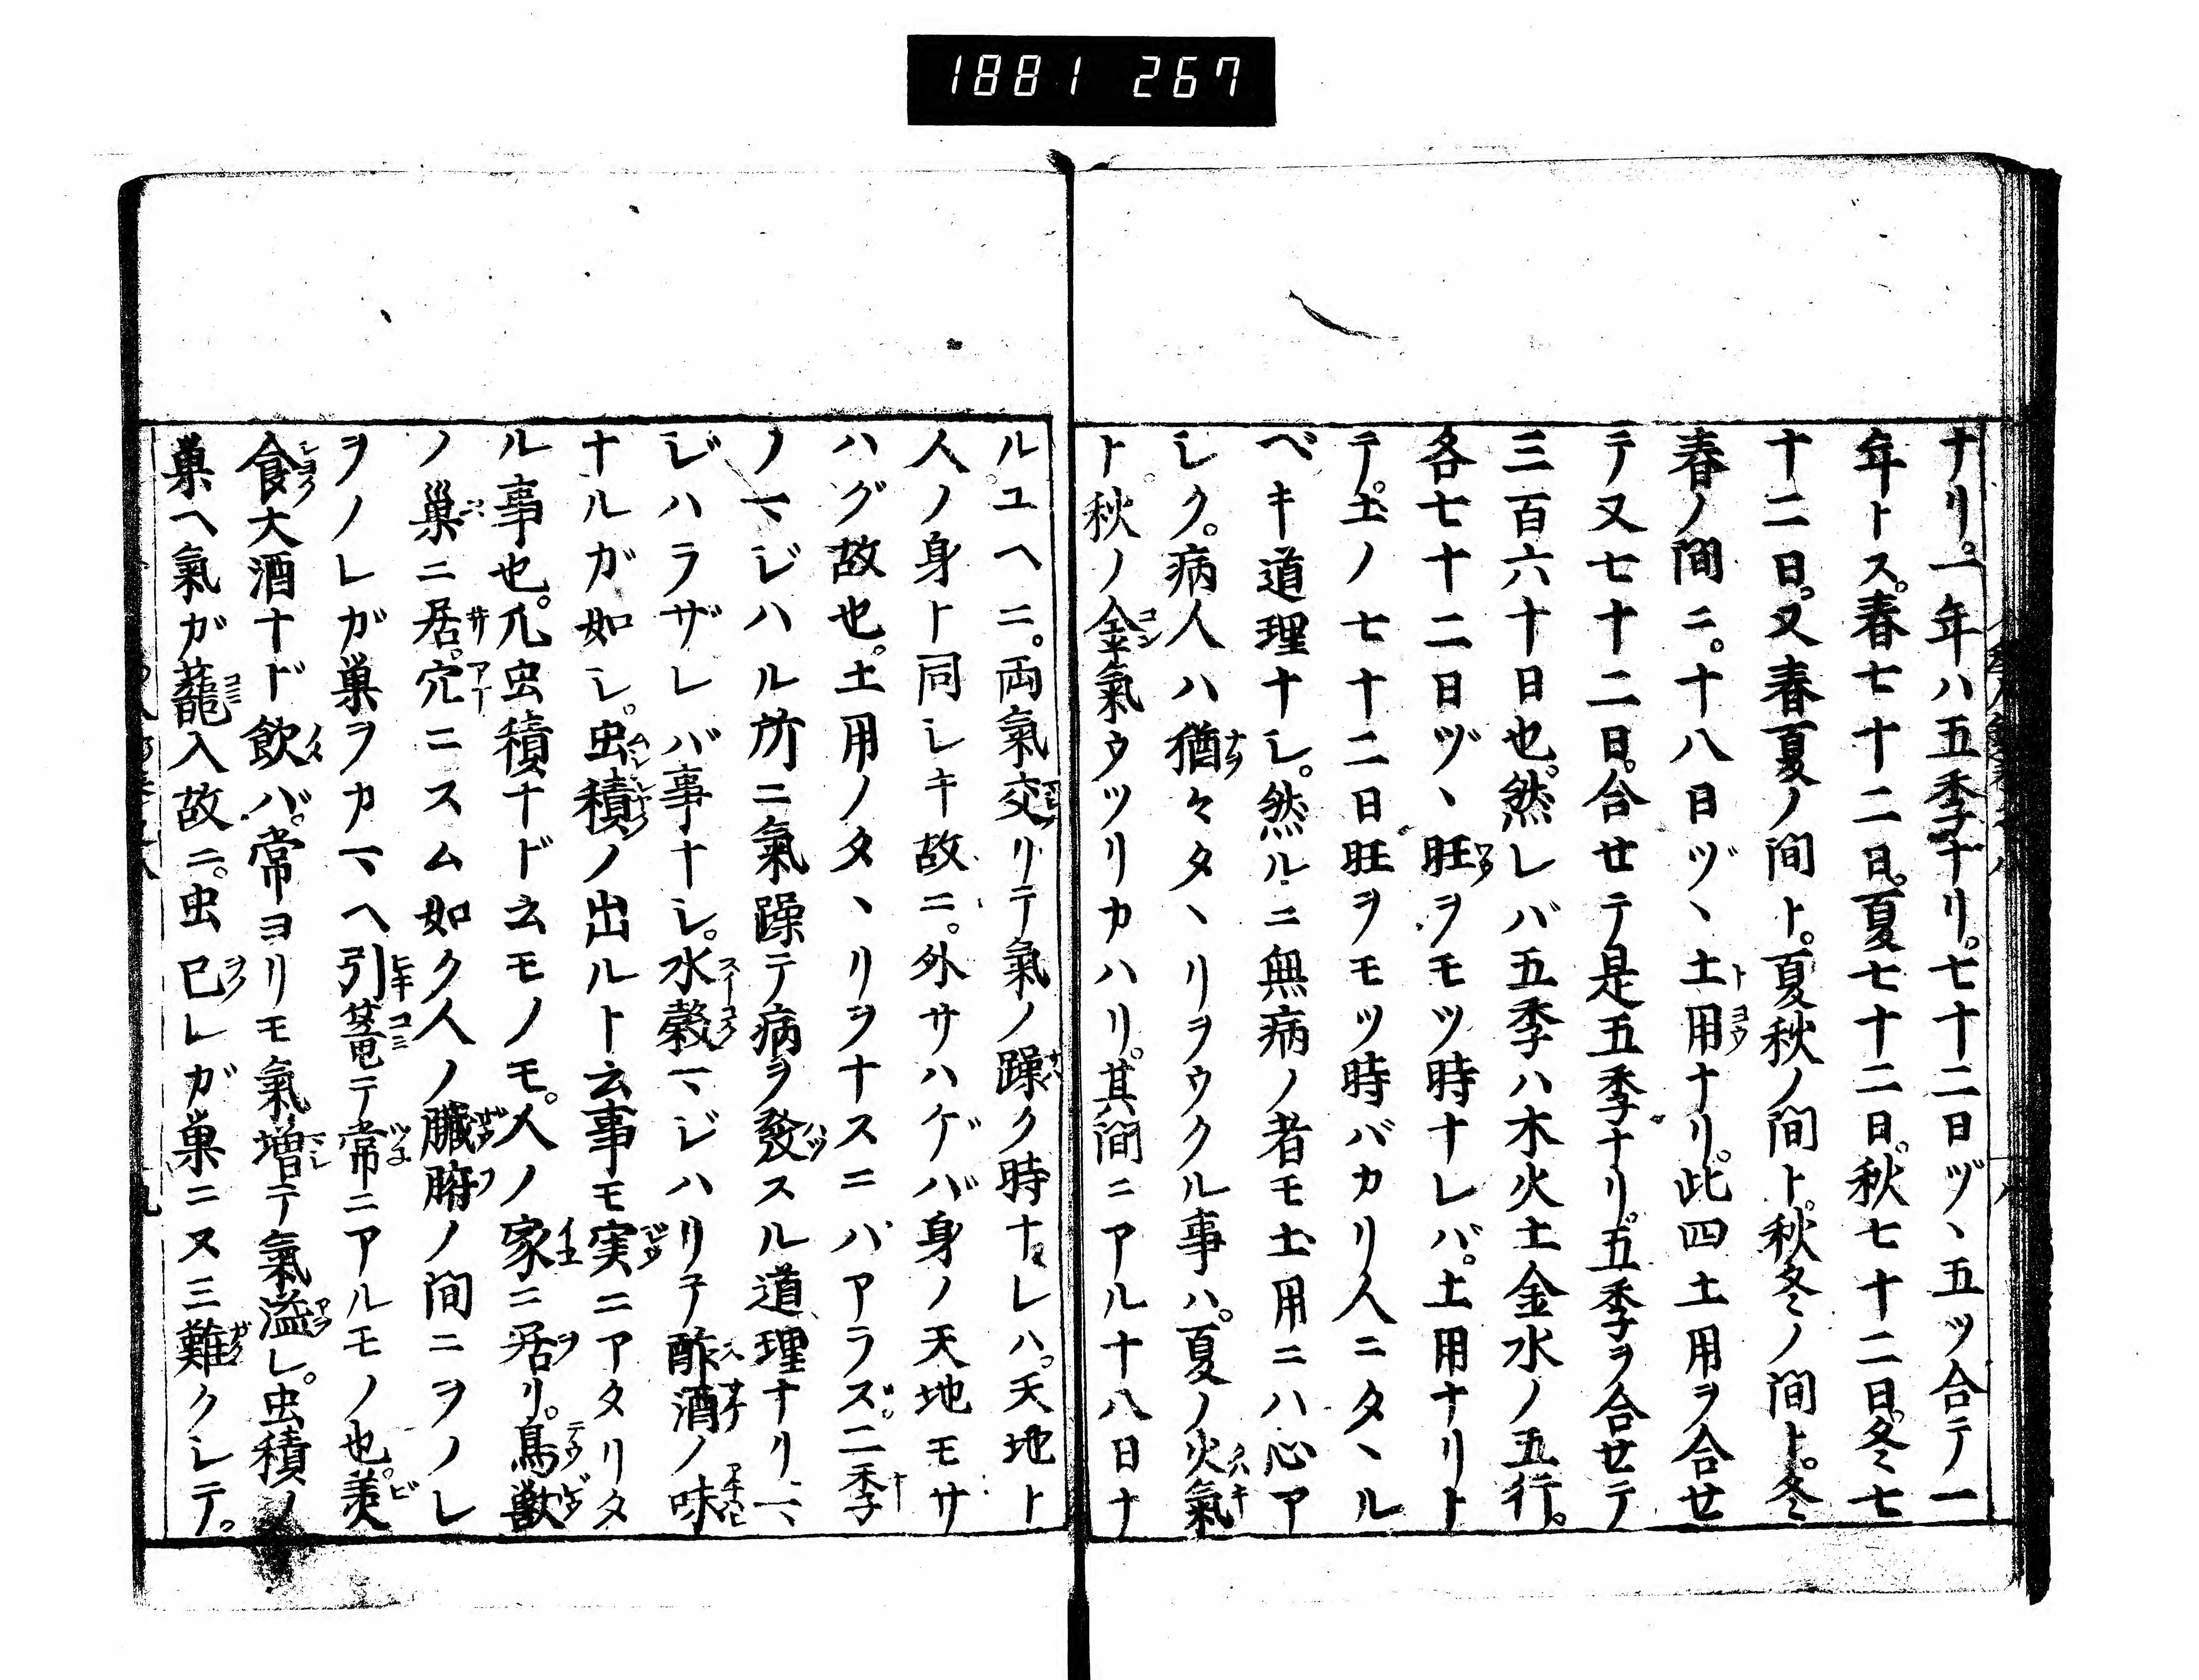 1881 267
ナリ。一年ハ五季ナリ。七十二日ヅヽ五ツ合テ一
年トス。春七十二日。夏七十二日。秋七十二日。冬七
十二日。又春夏ノ間ト。夏秋ノ間ト。秋冬ノ間ト。冬
春ノ間ニ。十八日ヅヽ土用ナリ。此四土用ヲ合せ
テ又七十二日。合せテ是五季ナリ。五季ヲ合せテ
三百六十日也。然レバ五季ハ木火土金水ノ五行。
各七十二日ヅヽ旺ヲモツ時ナレバ。土用ナリト
テ。土ノ七十二日旺ヲモツ時バカリ人ニタヽル
ベキ道理ナシ。然ルニ無病ノ者モ土用ニハ心ア
シク。病人ハ猶々タヽリヲウクル事ハ。夏ノ火氣
ト。秋ノ金氣ウツリカハリ。其間ニアル十八日ナ
ル。ユヘニ。両氣交リテ氣ノ躁ク時ナレハ。天地ト
人ノ身ト同シキ故ニ。外サハゲバ身ノ天地モサ
ハグ故也。土用ノタヽリヲナスニハアラズ。二季
ノマジハル所ニ氣躁テ病ヲ發スル道理ナリ。マ
ジハラザレバ事ナシ。水穀マジハリテ酢酒ノ味
ナルガ如シ。虫積ノ出ルト云事モ実ニアタリタ
ル事也。凡虫積ナド云モノモ。人ノ家ニ居リ。鳥獣
ノ巣ニ居。穴ニスム如ク人ノ臓腑ノ間ニヲノレ
ヲノレガ巣ヲカマヘ引篭テ常ニアルモノ也。美
食大酒ナド飲バ。常ヨリモ氣増テ氣溢レ。虫積ノ
巣ヘ氣ガ蘢入故ニ。虫已レガ巣ニヌ三難クシテ。